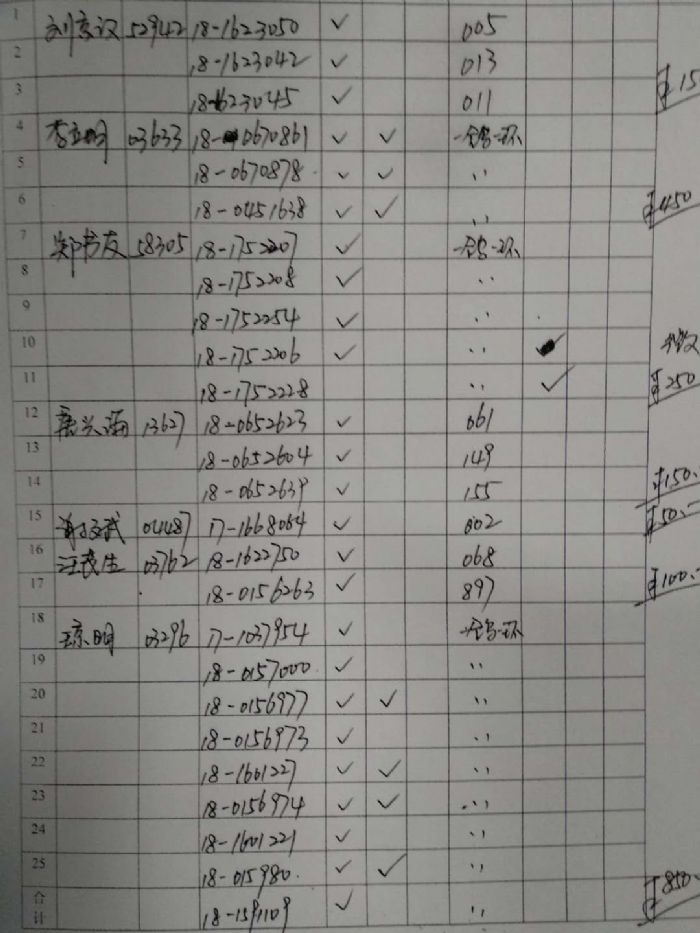 1 52942 18-1623050 ✓ 005
2 18-1623042 ✓ 013
3 18-1623045 ✓ 011 ¥15
4 李立明 03633 18-0670861 ✓ ✓ 一鸽一环
5 18-0670878 ✓ ✓ 〃
6 18-0451638 ✓ ✓ 〃 ¥450
7 郑书友 58305 18-1752207 ✓ 一鸽一环
8 18-1752208 ✓ 〃
9 18-1752254 ✓ 〃
10 18-1752206 ✓ 〃
11 18-1752228 〃 ✓ ¥250
12 13627 18-0652623 ✓ 061
13 18-0652604 ✓ 149
14 18-0652639 ✓ 155 ¥150.
15 04487 17-1668064 ✓ 002 ¥50.-
16 汪茂生 03762 18-1622750 ✓ 068
17 18-0156263 ✓ 897 ¥100.-
18 03296 17-1037954 ✓ 一鸽一环
19 18-0157000 ✓ 〃
20 18-0156977 ✓ ✓ 〃
21 18-0156973 ✓ 〃
22 18-1601227 ✓ ✓ 〃
23 18-0156974 ✓ ✓ 〃
24 18-1601221 ✓ 〃
25 18-015980 ✓ ✓ 〃 ¥850.
合计 18-1591109 ✓ 〃